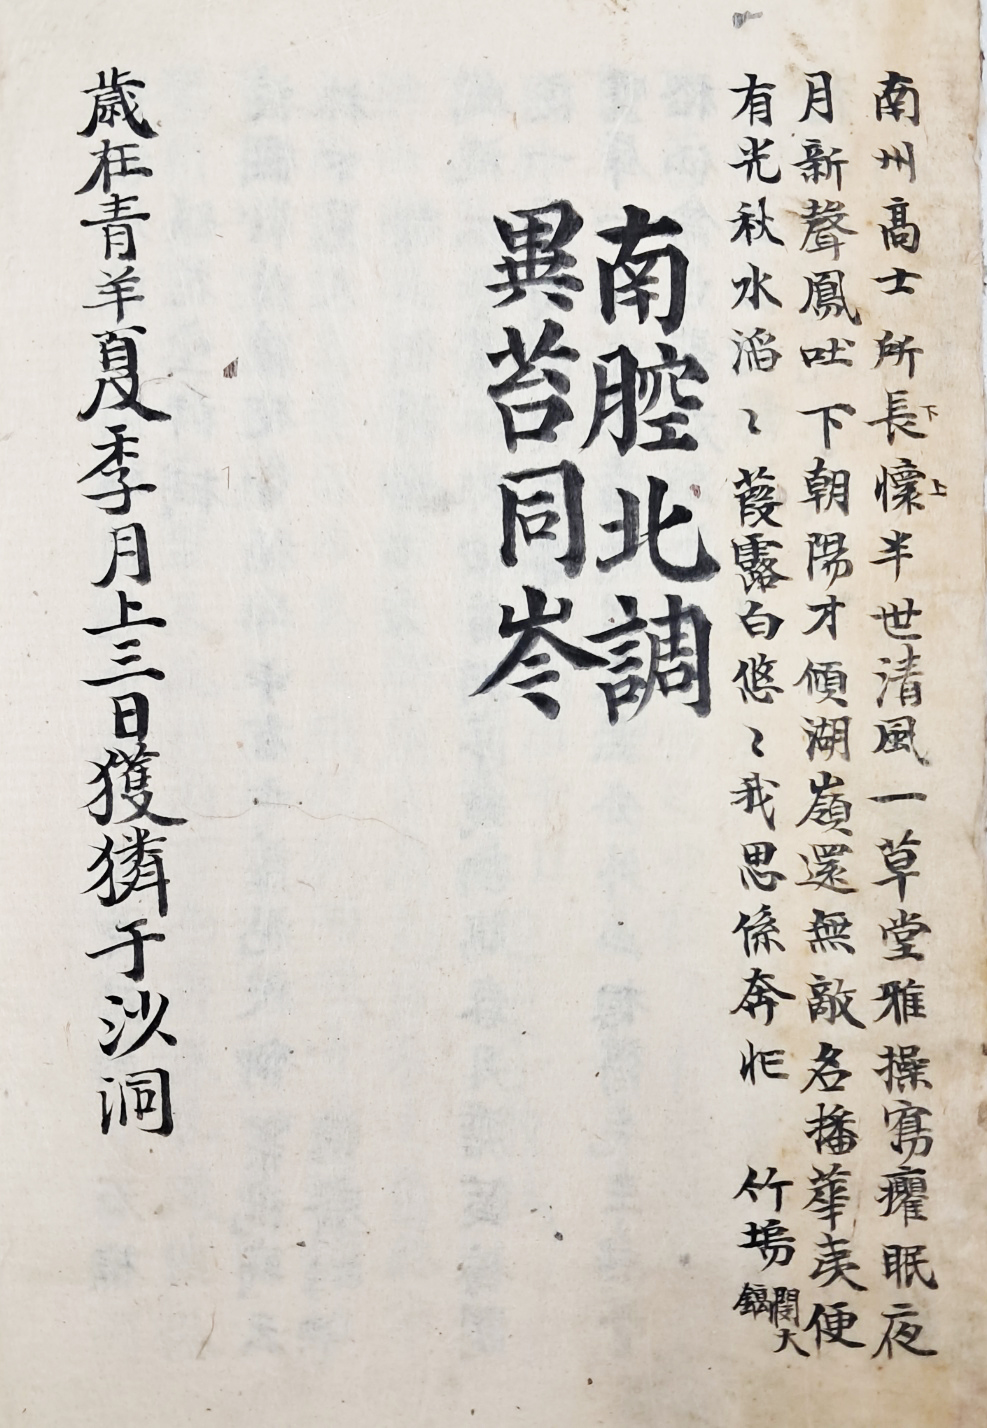 南州高士所長下懷上半世清風一草堂雅操寫癯眠夜
月新聲鳳吐下朝陽才傾湖嶺還無敵名播華夷便
有光秋水滔〻葭露白悠〻我思係奔忙 竹塢閔大鎬
南腔北調
異苔同岺
歲在青羊夏季月上三日獲獜于沙洞